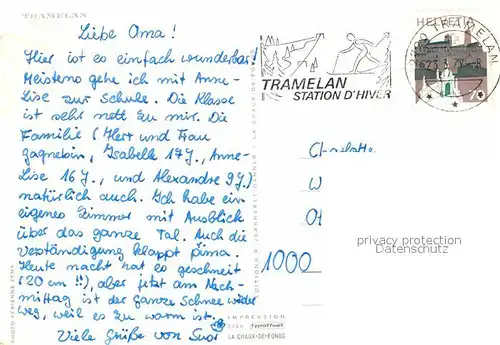 TRAMELAN
Liebe Oma!
Hier ist es einfach wunderbar!
Meistens gehe ich mit Anne-
Lise zur Schule. Die Klasse
ist sehr nett zu mir. Die
Familie (Herr und Frau
Gagnebin, Isabelle 17J., Anne-
Lise 16 J., und Alexandre 9J.)
natürlich auch. Ich habe ein
eigenes Zimmer mit Ausblick
über das ganze Tal. Auch die
Verständigung klappt prima.
Heute nacht hat es geschneit
(20 cm!!), aber jetzt am Nach-
mittag ist der ganze Schnee wieder
weg, weil es zu warm ist.
Viele Grüße von
TRAMELAN
STATION D'HIVER
HELVETIA
TRAMELAN
1000
privacy protection
Danstmavie.com
IMPRESSION
LA CHAUX-DE-FONDS